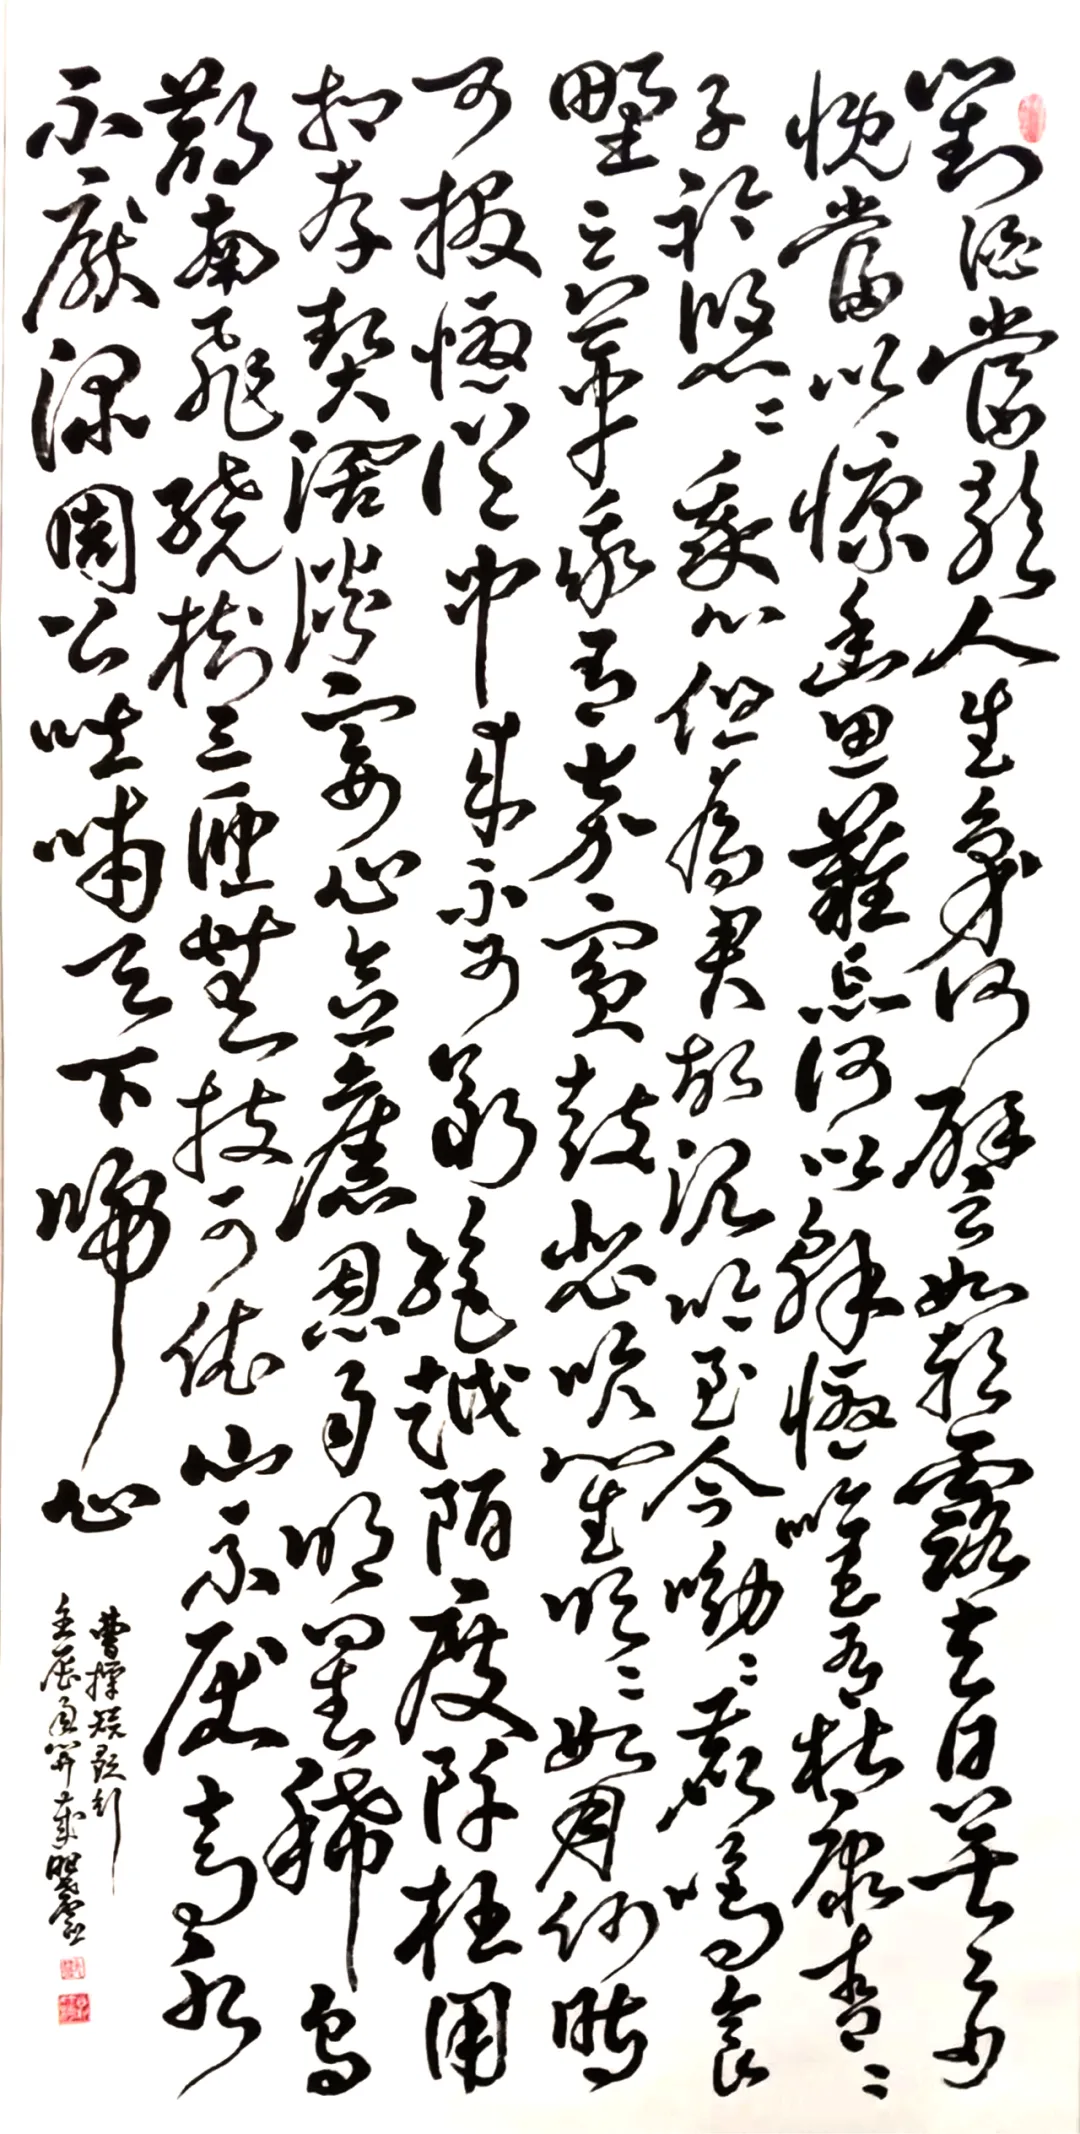 對酒當歌人生幾何譬如朝露去日苦多
慨當以慷幽思難忘何以解憂唯有杜康青〻
子衿悠〻我心但為君故沉吟至今呦〻鹿鳴食
野之苹我有嘉賓鼓瑟吹笙明〻如月何時
可掇憂從中來不可斷絕越陌度阡枉用
相存契闊談宴心念舊恩月明星稀烏
鵲南飛繞樹三匝無枝可依山不厭高水
不厭深周公吐哺天下歸心
曹操短歌行